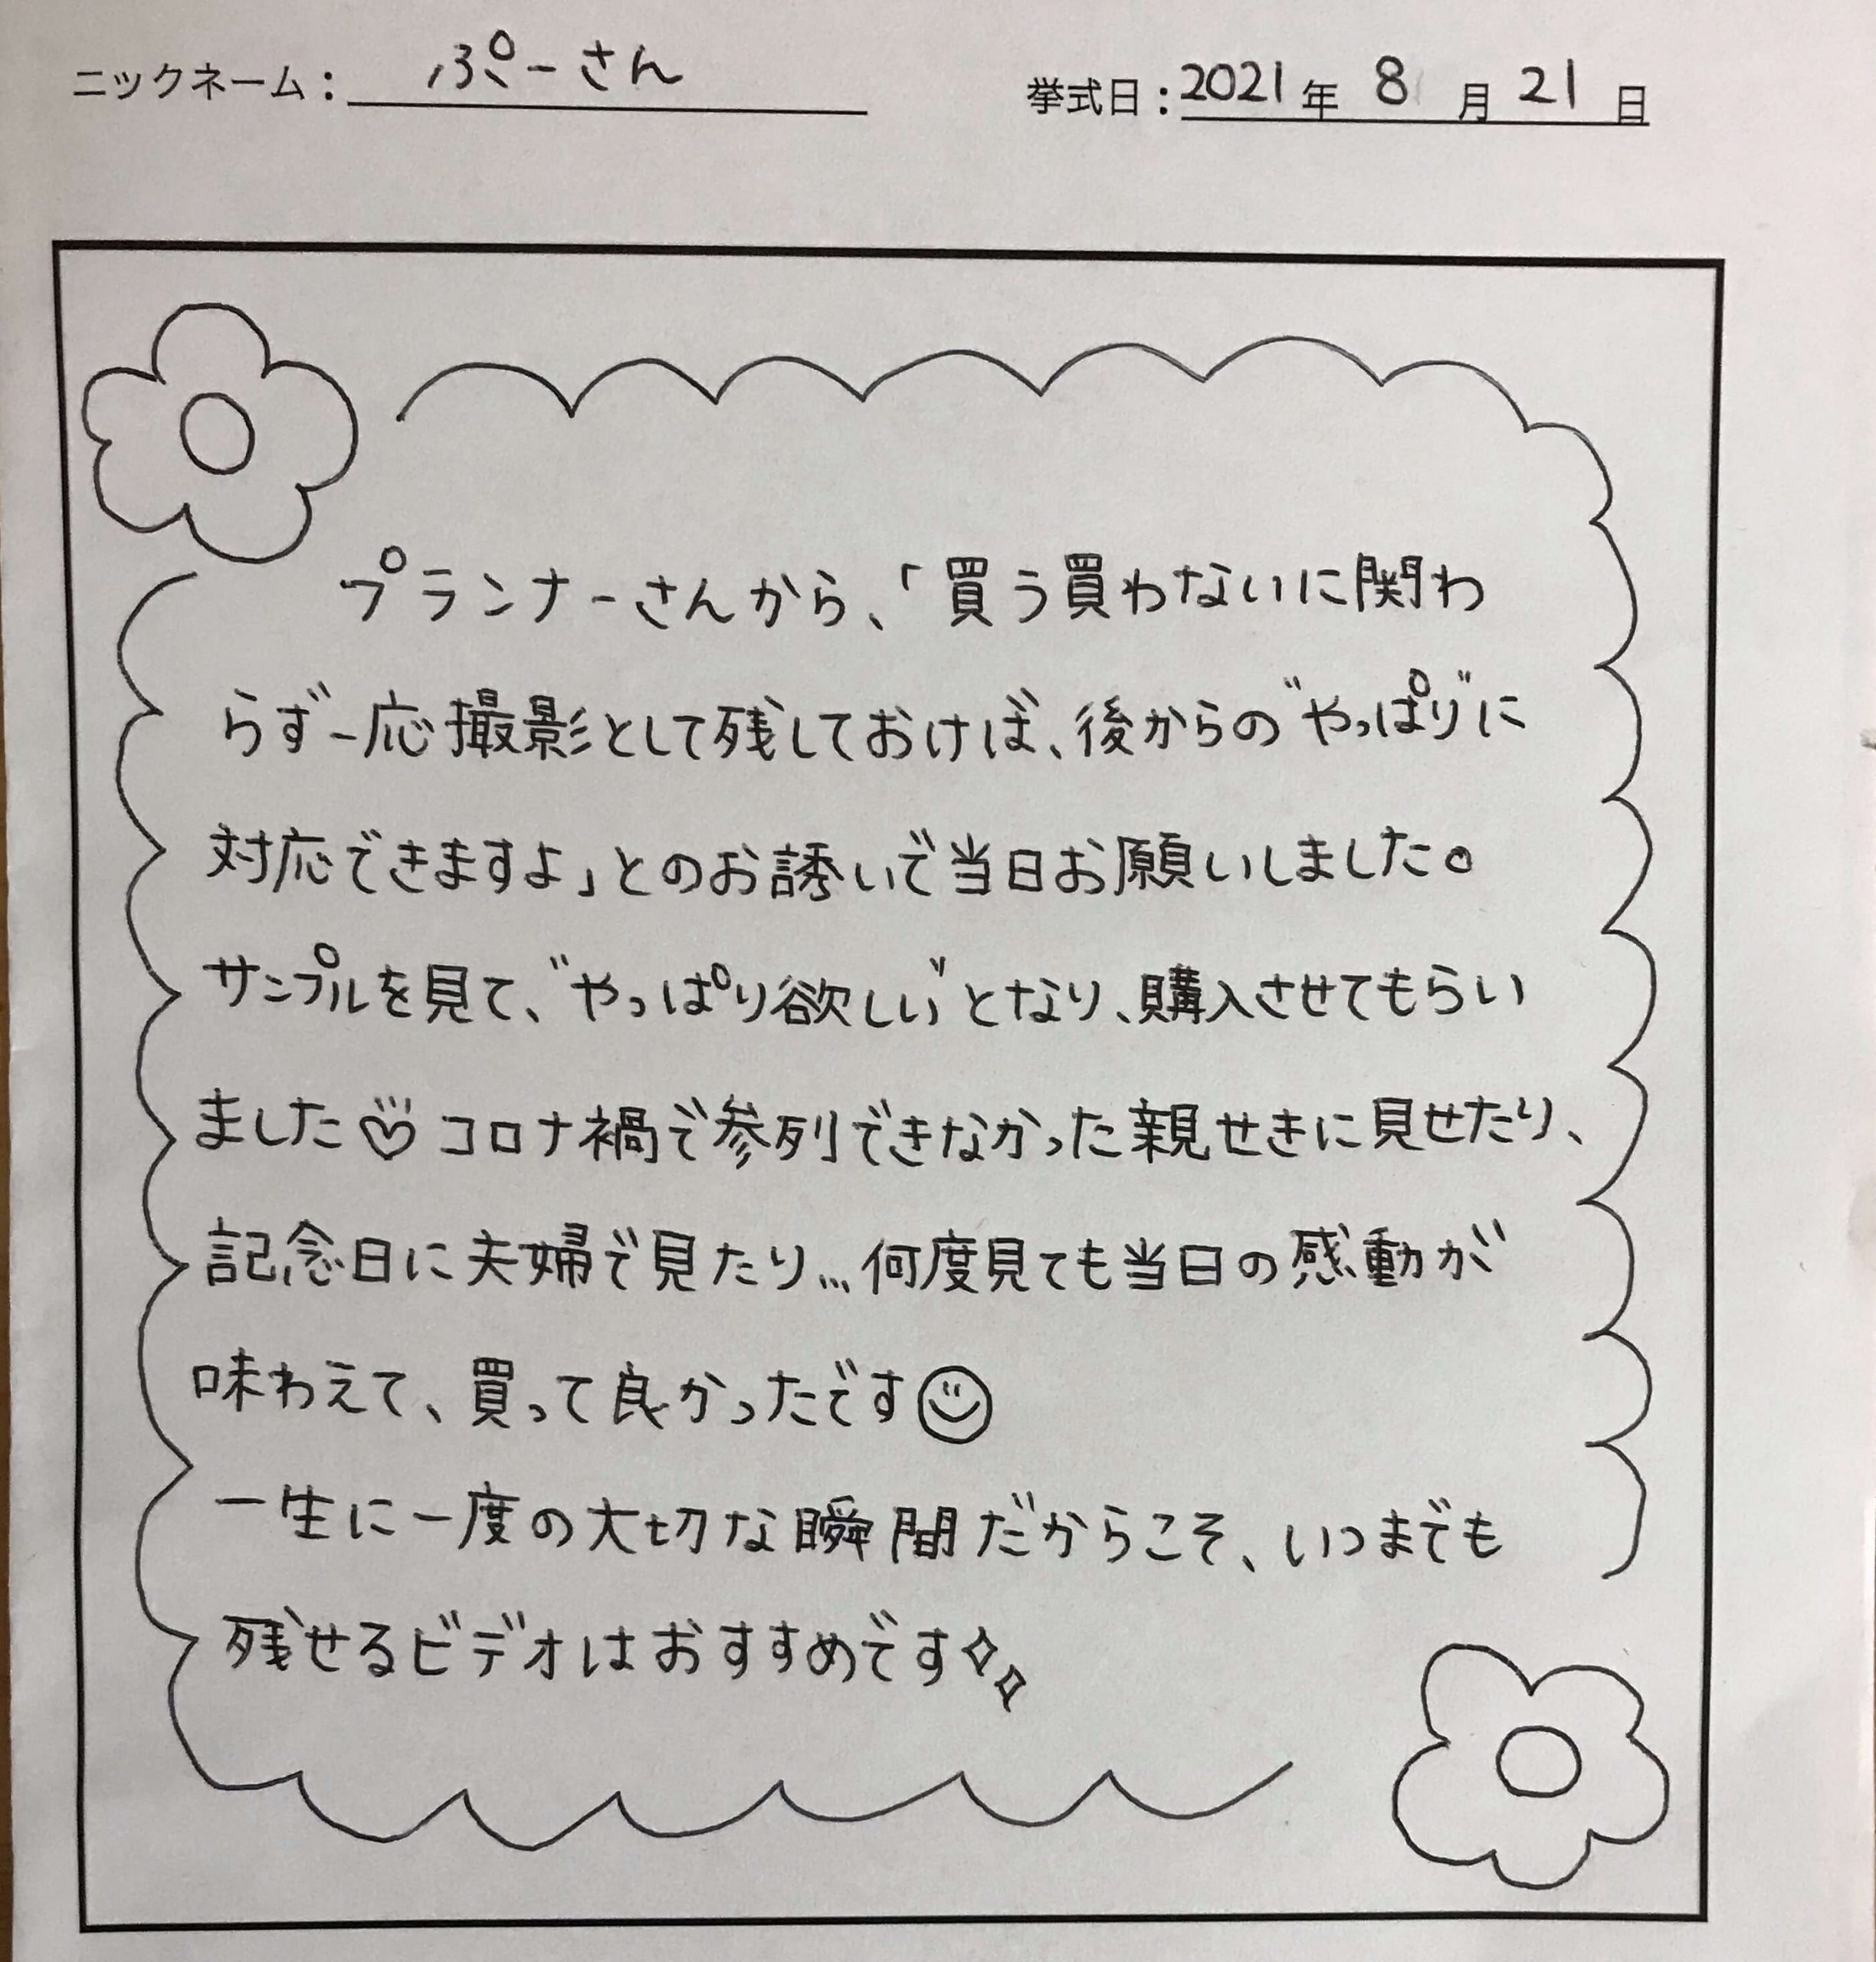 ニックネーム： ぷーさん
挙式日：2021年 8月 21日
プランナーさんから、「買う買わないに関わ
らず一応撮影として残しておけば、後からの“やっぱり”に
対応できますよ」とのお誘いで当日お願いしました。
サンプルを見て、“やっぱり欲しい”となり、購入させてもらい
ました♡コロナ禍で参列できなかった親せきに見せたり、
記念日に夫婦で見たり…何度見ても当日の感動が
味わえて、買って良かったです☺
一生に一度の大切な瞬間だからこそ、いつまでも
残せるビデオはおすすめです✧✧